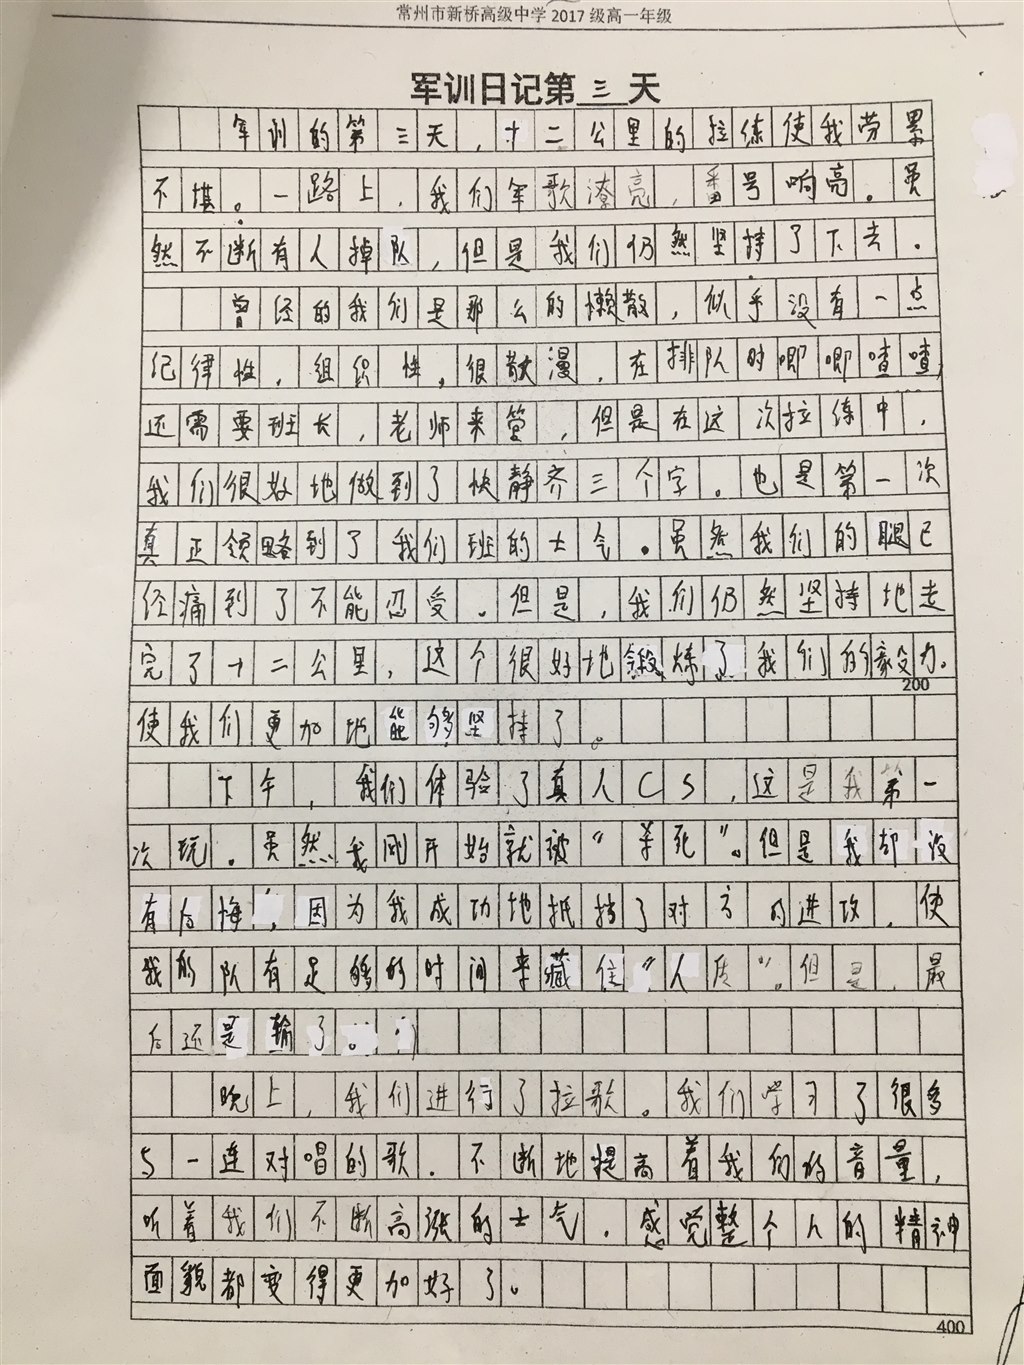 常州市新桥高级中学2017级高一年级
军训日记第三天
军训的第三天，十二公里的拉练使我劳累
不堪。一路上，我们军歌潦亮，番号响亮。虽
然不断有人掉队，但是我们仍然坚持了下去。
曾经的我们是那么的懒散，似乎没有一点
纪律性，组织性，很散漫，在排队时唧唧喳喳，
还需要班长，老师来管，但是在这次拉练中，
我们很好地做到了快静齐三个字。也是第一次
真正领略到了我们班的士气。虽然我们的腿已
经痛到了不能忍受。但是，我们仍然坚持地走
完了十二公里，这个很好地锻炼了我们的毅力。
200
使我们更加地能够坚持了。
下午，我们体验了真人CS，这是我第一
次玩。虽然我刚开始就被“杀死”。但是我却没
有后悔，因为我成功地抵挡了对方的进攻，使
我的队有足够的时间来藏住“人质”。但是，最
后还是输了。
晚上，我们进行了拉歌。我们学习了很多
与一连对唱的歌．不断地提高着我们的音量，
听着我们不断高涨的士气，感觉整个人的精神
面貌都变得更加好了。
400